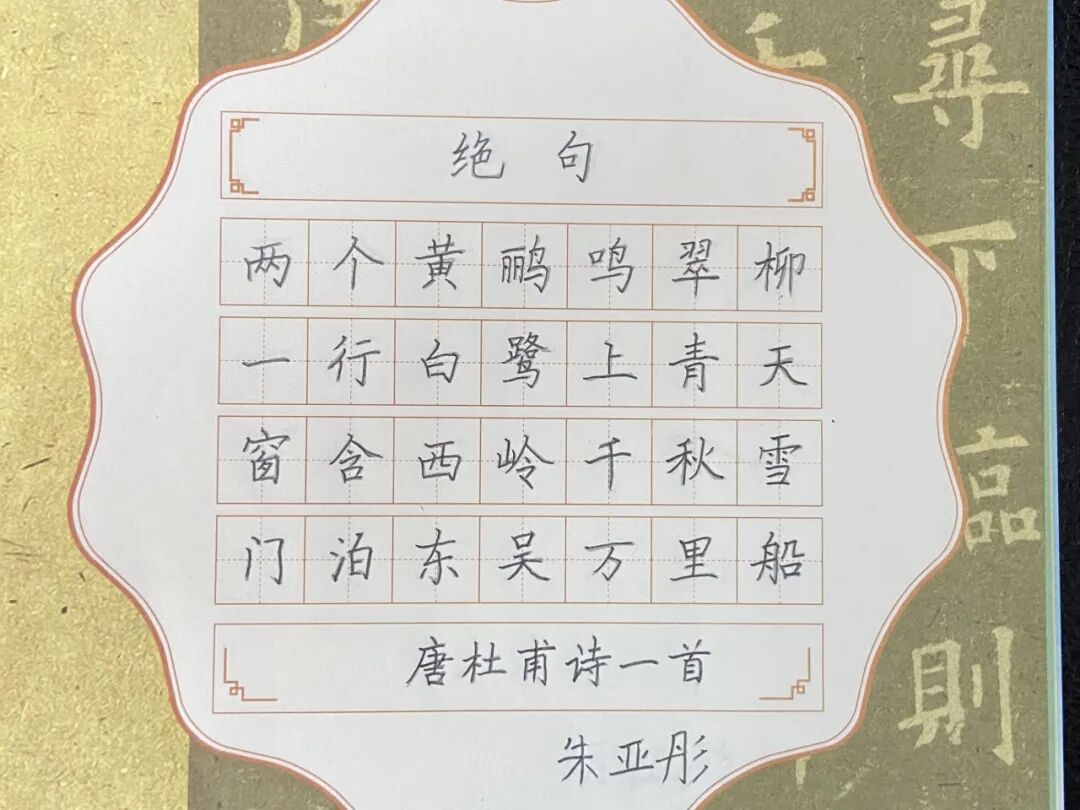 绝句
两个黄鹂鸣翠柳
一行白鹭上青天
窗含西岭千秋雪
门泊东吴万里船
唐杜甫诗一首
朱亚彤
尋
下
則